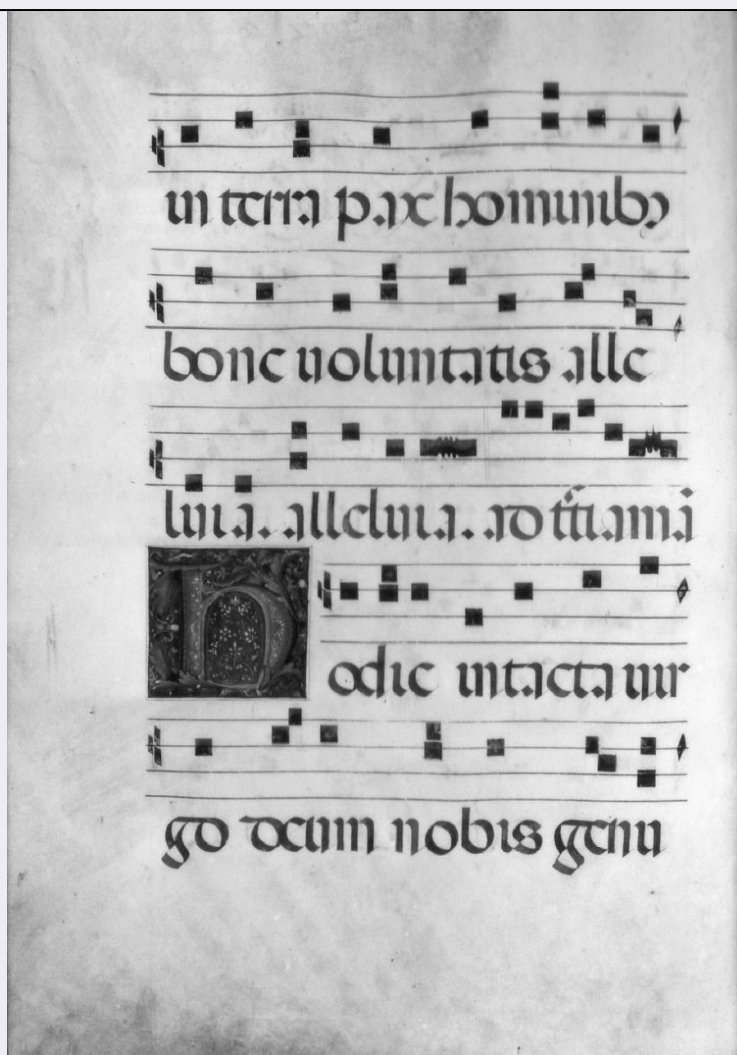 in terra pax hominibꝰ
bone uoluntatis alle
luia. alleluia. ad
Hodie intacta uir
go deum nobis genu